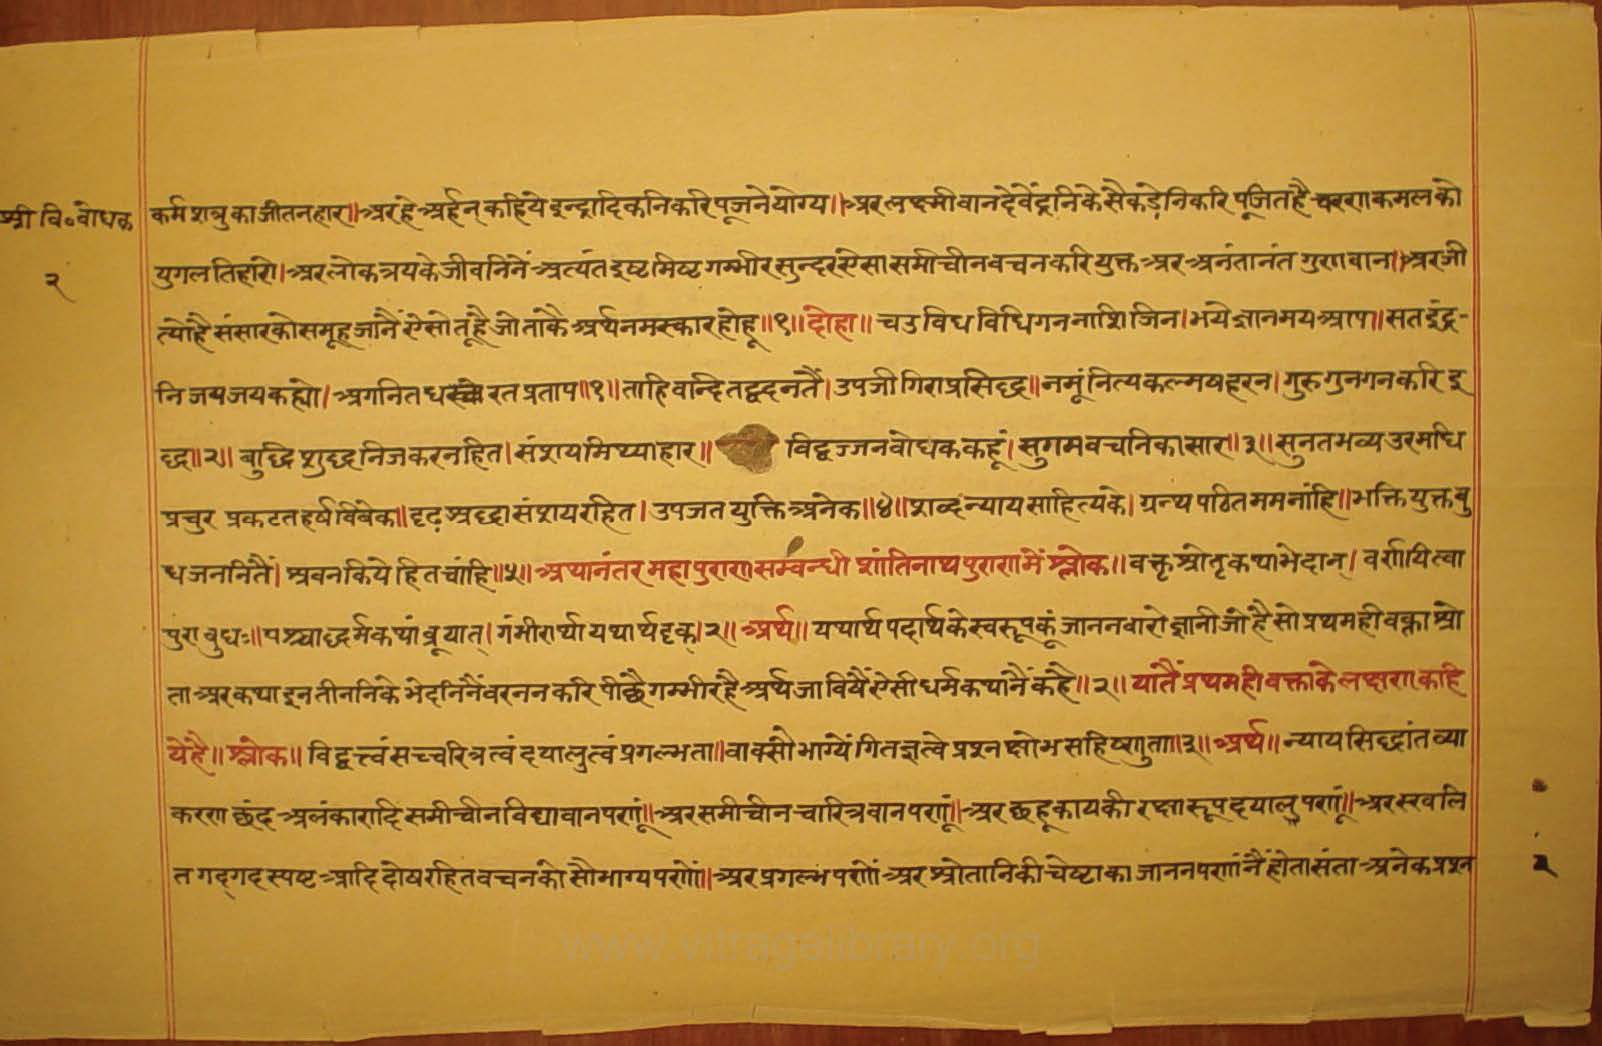 श्री वि॰ बोधक
२
कर्म शत्रु का जीतनहार॥ अर हे अर्हन् कहिये इन्द्रादिकनिकरि पूजने योग्य॥ अर लक्ष्मीवान देवेंद्रनिके सैकड़ेनिकरि पूजित है चरण कमल को
युगल तिहारो। अर लोकत्रय के जीवनिनें अत्यंत इष्ट मिष्ट गम्भीर सुन्दर ऐसा समीचीन वचन करि युक्त अर अनंतानंत गुणवान॥ अर जी
त्यो है संसार को समूह जानैं ऐसो तू है जो ताकै अर्थ नमस्कार होहू॥१॥ दोहा॥ चउ विध विधि गन नाशि जिन। भये ज्ञानमय आप॥ सत इंद्र-
नि जय जय कह्यो। अगनित धरत प्रताप॥१॥ ताहि वन्दि तद्वदनतैं। उपजी गिरा प्रसिद्ध॥ नमूं नित्य कल्मष हरन। गुरु गुन गन करि इ
द्ध॥२॥ बुद्धि शुद्ध निज करन हित। संशय मिथ्या हार॥ विद्वज्जन बोधक कहूं। सुगम वचनिका सार॥३॥ सुनत भव्य उर मधि
प्रचुर प्रकटत हर्ष विवेक॥ दृढ़ श्रद्धा संशय रहित। उपजत युक्ति अनेक॥४॥ शब्द न्याय साहित्य के। ग्रन्थ पठित मम नांहि॥ भक्ति युक्त बु
ध जननितैं। श्रवन किये हित चांहि॥५॥ अथानंतर महापुराण सम्बन्धी शांतिनाथ पुराण में श्लोक॥ वक्तृ श्रोतृ कथा भेदान्। वर्णयित्वा
पुरा बुधः॥ पश्चाद्धर्मकथां ब्रूयात्। गंभीरार्थां यथार्थदृक्।२॥ अर्थ॥ यथार्थ पदार्थ के स्वरूप कूं जाननवारो ज्ञानी जो है सो प्रथम ही वक्ता श्रो
ता अर कथा इन तीननिके भेदनिनैं वरनन करि पीछै गम्भीर है अर्थ जा विषैं ऐसी धर्मकथानैं कहै॥२॥ यातैं प्रथम ही वक्ता के लक्षण कहि
ये है॥ श्लोक॥ विद्वत्त्वं सच्चरित्रत्वं दयालुत्वं प्रगल्भता॥ वाक्सौभाग्येंगितज्ञत्वे प्रश्न क्षोभ सहिष्णुता॥३॥ अर्थ॥ न्याय सिद्धांत व्या
करण छंद अलंकारादि समीचीन विद्यावानपणूं॥ अर समीचीन चारित्रवानपणूं॥ अर छहू काय की रक्षारूप दयालुपणूं॥ अर स्खलि
त गद्गद स्पष्ट आदि दोष रहित वचन को सौभाग्यपणों॥ अर प्रगल्भपणों अर श्रोतानिकी चेष्टा का जाननपणांनैं होता संता अनेक प्रश्न
२
www.vitragelibrary.org